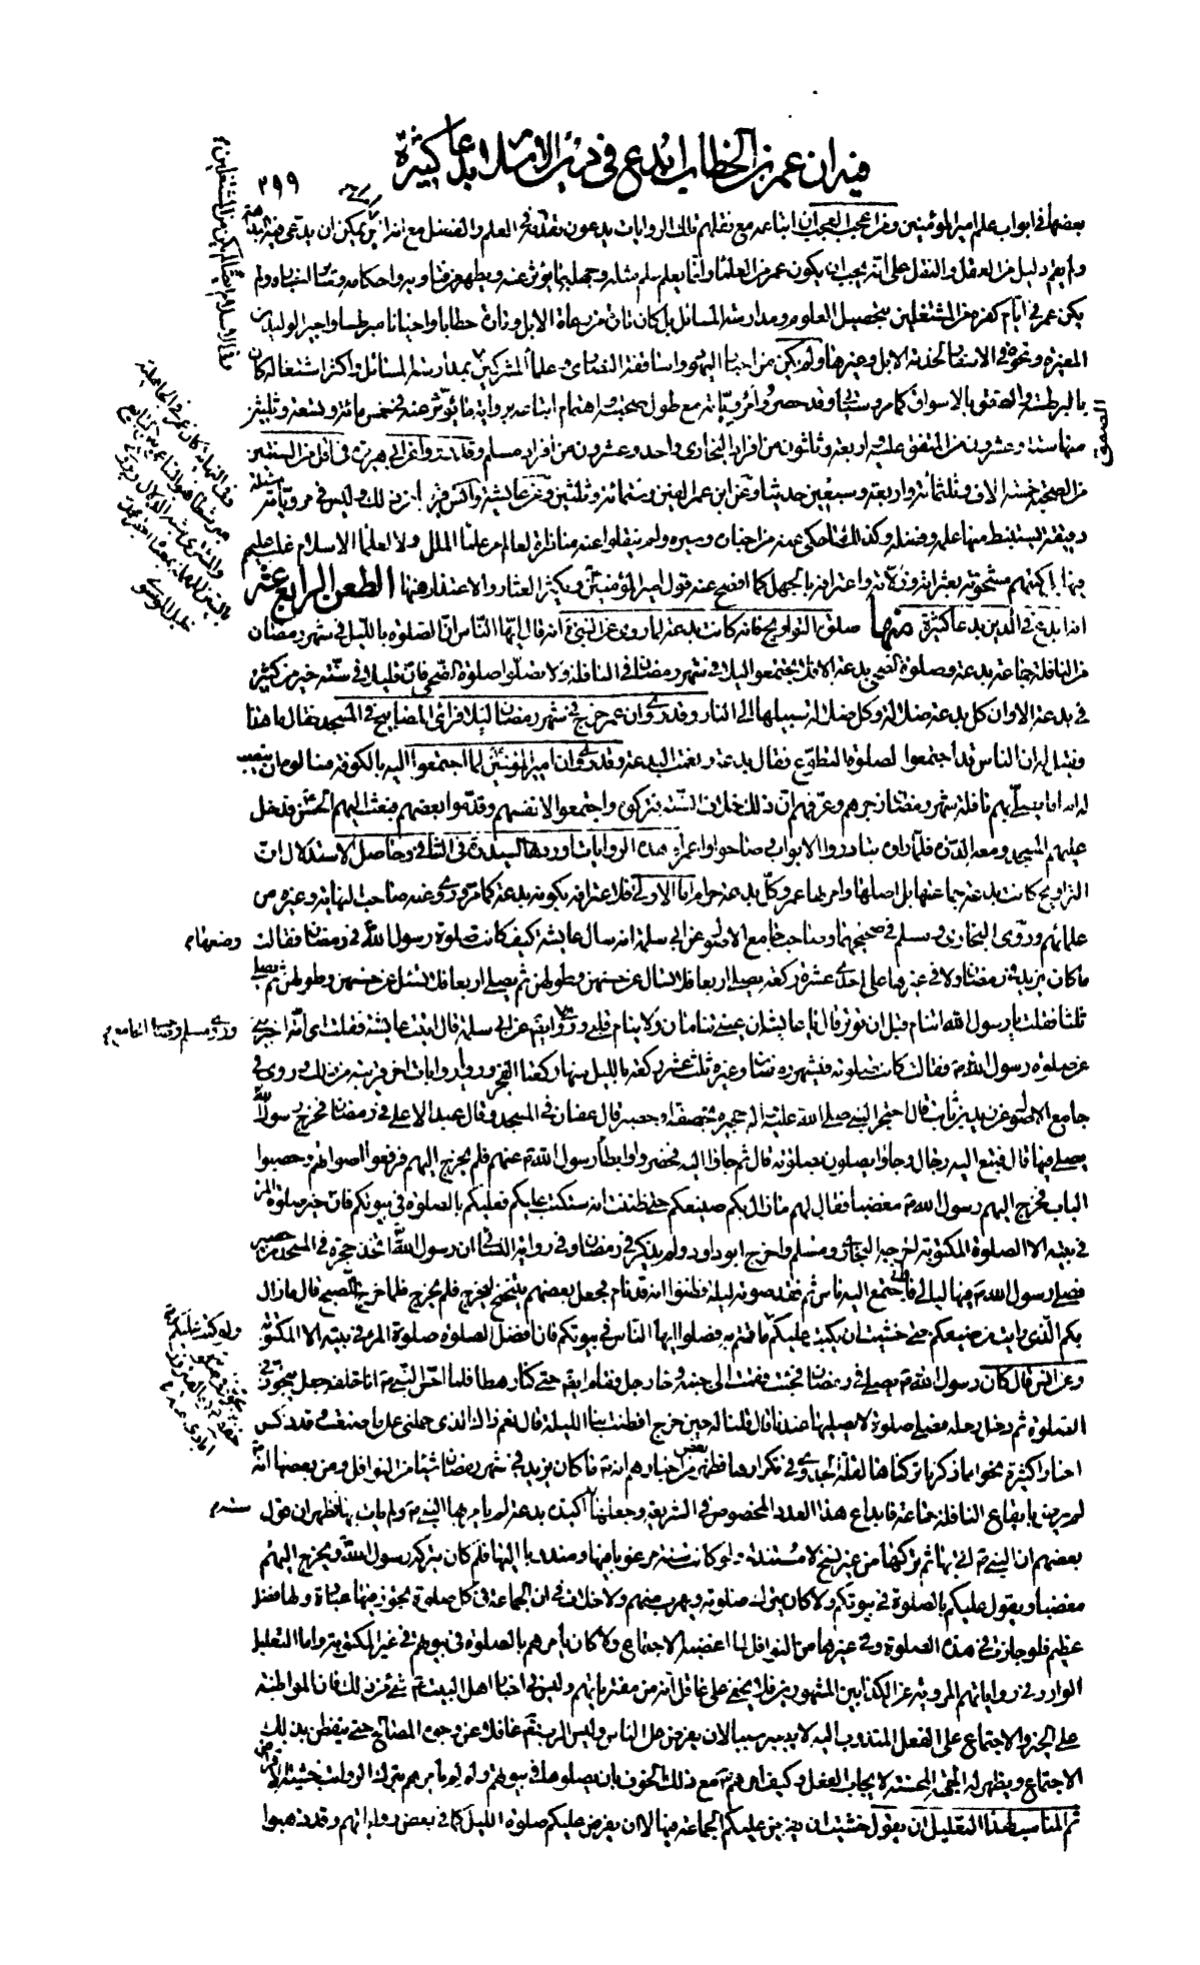 فيه ان عمر بن الخطاب ابدع في دين الاسلام بدعا كثيرة
٢٩٩
بعضها في ابواب علم امير المؤمنين و من اعجب العجب ان اتباعه مع نقلهم تلك الروايات يدعون تقدمه في العلم والفضل مع انه
ولم يقم دليل من العقل والنقل على انه يجب ان يكون عمر من العلماء وانما يعلم علم مثله وجهله بما يؤثر عنه ويظهر من فتاويه واحكامه و ولم
يكن عمر في ايام كفره من المشتغلين بتحصيل العلوم ومدارسة المسائل بل كان تارة من رعاة الابل وتارة حطابا واحيانا مبرطسا واجيرا لوليد بن
المغيرة ونحوه في الاسفار لخدمة الابل وغيرها ولم يكن من احبار اليهود واساقفة النصارى وعلماء المشركين بمدارسة المسائل واكثر اشتغاله كان
بالبرطسة والصفق بالاسواق وقد حصروا مروياته مع طول صحبته واهتمام اتباعه برواية ما يؤثر عنه في خمس مائة وتسعة وثلثين
منها ستة وعشرون من المتفق عليه واربعة وثلاثون من افراد البخاري واحد وعشرون من افراد مسلم وقد رووا عن ابي هريرة في اقل من السنتين
من الصحبة خمسة الاف وثلثمائة واربعة وسبعين حديثا وعن ابن عمر الفين وستمائة وثلثين وعن عايشة وانس قريبا من ذلك وليس في مروياته مسئلة
دقيقة يستنبط منها علمه وفضله وكذلك ما حكي عنه من اخباره وسيره ولم ينقلوا عنه مناظرة لعالم من علماء الملل ولا لعلماء الاسلام غلب عليهم
فيها بل كتبهم مشحونة بعثراته وزلاته واعترافه بالجهل كما افصح عنه قول امير المؤمنين ويكثر العثار والاعتذار منها الطعن الرابع عشر
انه ابدع في الدين بدعا كثيرة منها صلوة التراويح فانه كانت بدعة لما روي عن النبي انه قال ايها الناس ان الصلوة بالليل في شهر رمضان
من النافلة جماعة بدعة وصلوة الضحى بدعة الا فلا تجتمعوا ليلا في شهر رمضان في النافلة ولا تصلوا صلوة الضحى فان قليلا في سنة خير من كثير
في بدعة الا وان كل بدعة ضلالة وكل ضلالة سبيلها الى النار وقد روي وان عمر خرج في شهر رمضان ليلا فرأى المصابيح في المسجد فقال ما هذا
فقيل له ان الناس قد اجتمعوا لصلوة التطوع فقال بدعة ونعمت البدعة وقد روي وان امير المؤمنين لما اجتمعوا اليه بالكوفة فسألوه ان ينصب
لهم اماما يصلي بهم نافلة شهر رمضان زجرهم وعرفهم ان ذلك خلاف السنة فتركوه واجتمعوا لانفسهم وقدموا بعضهم فبعث اليهم الحسن فدخل
عليهم المسجد ومعه الدرة فلما رأوه تبادروا الابواب وصاحوا واعمراه هذه الروايات اوردها السيد في الشافي وحاصل الاستدلال ان
التراويح كانت بدعة جماعتها بل اصلها وامر بها عمر وكل بدعة حرام اما الاولى فلاعترافه بكونه بدعة كما مر وروى عنه صاحب النهاية وغيره من
علمائهم وروى البخاري ومسلم في صحيحهما وصاحب جامع الاصول عن ابي سلمة انه سال عايشة كيف كانت صلوة رسول الله في رمضان فقالت
ما كان يزيد في رمضان ولا في غيرها على احدى عشرة ركعة يصلي اربعا فلا تسال عن حسنهن وطولهن ثم يصلي اربعا فلا تسئل عن حسنهن وطولهن ثم يصلي
ثلثا فقلت يا رسول الله اتنام قبل ان توتر قال يا عايشة ان عيني تنامان ولا ينام قلبي وروى ايضا عن ابي سلمة قال اتيت عايشة فقلت اي امه اخبريني
عن صلوة رسول الله فقالت كانت صلوته في شهر رمضان وغيره ثلث عشرة ركعة بالليل منها ركعتا الفجر ورووا روايات اخر قريبة من ذلك وروى في
جامع الاصول عن زيد بن ثابت قال احتجر النبي صلى الله عليه واله حجيرة بخصفة او حصير قال عفان في المسجد وقال عبد الاعلى في رمضان فخرج رسول الله
يصلي فيها قال فتتبع اليه رجال وجاؤا يصلون بصلوته قال ثم جاؤا اليه فحضروا وابطأ رسول الله عنهم فلم يخرج اليهم فرفعوا اصواتهم وحصبوا
الباب فخرج اليهم رسول الله مغضبا فقال لهم ما زال بكم صنيعكم حتى ظننت انه سيكتب عليكم فعليكم بالصلوة في بيوتكم فان خير صلوة المرء
في بيته الا الصلوة المكتوبة اخرجه البخاري ومسلم واخرج ابو داود ولم يذكر في رمضان وفي رواية النسائي ان رسول الله اتخذ حجرة في المسجد من حصير
فصلى رسول الله فيها ليالي فاجتمع اليه ناس ثم فقد صوته ليلة وظنوا انه قد نام فجعل بعضهم يتنحنح ليخرج فلم يخرج فلما خرج للصبح قال ما زال
بكم الذي رايت من صنيعكم حتى خشيت ان يكتب عليكم ما قمتم به فصلوا ايها الناس في بيوتكم فان افضل الصلوة صلوة المرء في بيته الا المكتوبة
وعن انس قال كان رسول الله يصلي في رمضان فجئت فقمت الى جنبه وجاء رجل فقام ايضا حتى كنا رهطا فلما احس النبي انا خلفه جعل يتجوز في
الصلوة ثم دخل رحله فصلى صلوة لا يصليها عندنا قال قلنا له حين خرج افطنت بنا الليلة قال نعم ذاك الذي حملني على ما صنعت وقد
اخبارا كثيرة نحوا مما ذكرنا تركناها لقلة الجدوى في تكرارها فظهر من بعض اخبارهم انه ما كان يزيد في شهر رمضان شيئا من النوافل ومن بعضها انه
لم يرض بايقاع النافلة جماعة فابداع هذا العدد المخصوص في الشريعة وجعلها سنة اكيدة بدعة لم يأمر بها النبي ولم يات بها فظهر ان قول
بعضهم ان النبي اتى بها ثم تركها من غير نسخ لا مستند له ولو كانت سنة مرغوبا فيها ومندوبا اليها فلم كان يتركه رسول الله ويخرج اليهم
مغضبا ويقول عليكم بالصلوة في بيوتكم ولا كان يترك صلوته ويهرب منهم ولا خلاف في ان الجماعة في كل صلوة يجوز فيها عبادة ولها فضل
عظيم فلو جازت في هذه الصلوة وفي غيرها من النوافل لما اغضبه الاجتماع ولا كان يأمرهم بالصلوة في بيوتهم في غير المكتوبة واما التعليل
الوارد في رواياتهم المروية عن الكذابين المشهورين فلا يخفى على عاقل انه من مفترياتهم وليس في اخبار اهل البيت شيء من ذلك فان المواظبة
على الخير والاجتماع على الفعل المندوب اليه لا يصير سببا لان يفرض على الناس وليس الرب تعالى غافلا عن وجوه المصالح حتى يتفطن بذلك
الاجتماع ويظهر له الجهة المحسنة لايجاب الفعل وكيف امرهم مع ذلك الخوف بان يصلوها في بيوتهم ولم لم يأمرهم بترك الرواتب خشية الافتراض
ثم المناسب لهذا التعليل ان يقول خشيت ان يفرض عليكم الجماعة فيها لا ان يفرض عليكم صلوة الليل كما في بعض رواياتهم وقد ذهبوا